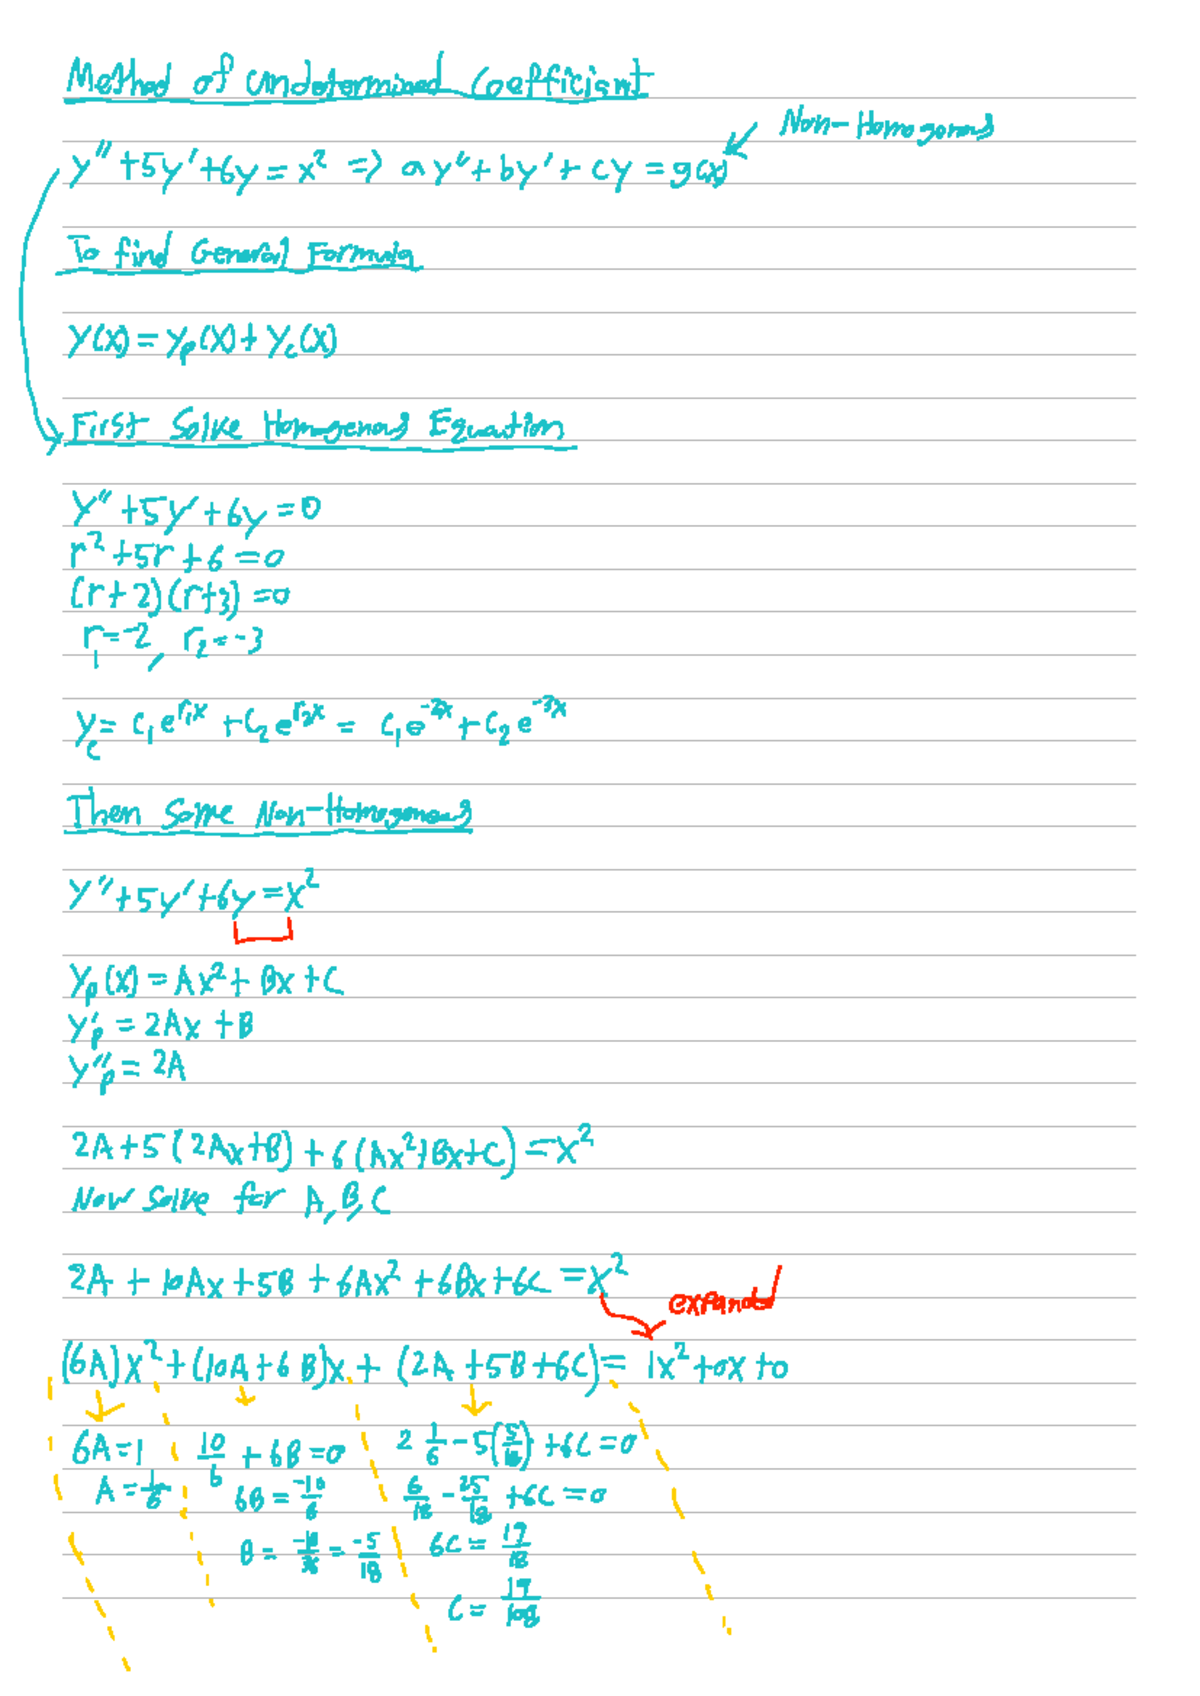 Method of Undetermined Coefficient
Non-Homogenous
y'' + 5y' + 6y = x² => ay'' + by' + cy = g(x)
To find General Formula
Y(x) = Yp(x) + Yc(x)
First Solve Homogenous Equation
Y'' + 5y' + 6y = 0
r² + 5r + 6 = 0
(r + 2)(r+3) = 0
r₁ = -2, r₂ = -3
Yc = C₁e^r₁x + C₂e^r₂x = C₁e^-2x + C₂e^-3x
Then Some Non-Homogenous
Y'' + 5y' + 6y = x²
Yp(x) = Ax² + Bx + C
Y'p = 2Ax + B
Y''p = 2A
2A + 5(2Ax+B) + 6(Ax²+Bx+C) = x²
Now Solve for A, B, C
2A + 10Ax + 5B + 6Ax² + 6Bx + 6C = x²
expanded
(6A)x² + (10A + 6B)x + (2A + 5B + 6C) = 1x² + 0x + 0
6A = 1 10/6 + 6B = 0 2 1/6 - 5(5/18) + 6C = 0
A = 1/6 6B = -10/6 6/18 - 25/18 + 6C = 0
B = -10/36 = -5/18 6C = 19/18
C = 19/108